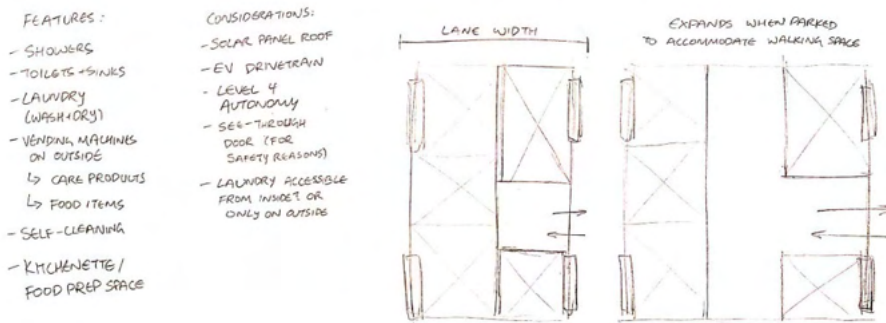 FEATURES:
- SHOWERS
- TOILETS + SINKS
- LAUNDRY
(WASH + DRY)
- VENDING MACHINES
ON OUTSIDE
↳ CARE PRODUCTS
↳ FOOD ITEMS
- SELF-CLEANING
- KITCHENETTE/
FOOD PREP SPACE
CONSIDERATIONS:
- SOLAR PANEL ROOF
- EV DRIVETRAIN
- LEVEL 4
AUTONOMY
- SEE-THROUGH
DOOR (FOR
SAFETY REASONS)
- LAUNDRY ACCESSIBLE
FROM INSIDE? OR
ONLY ON OUTSIDE
LANE WIDTH
EXPANDS WHEN PARKED
TO ACCOMMODATE WALKING SPACE